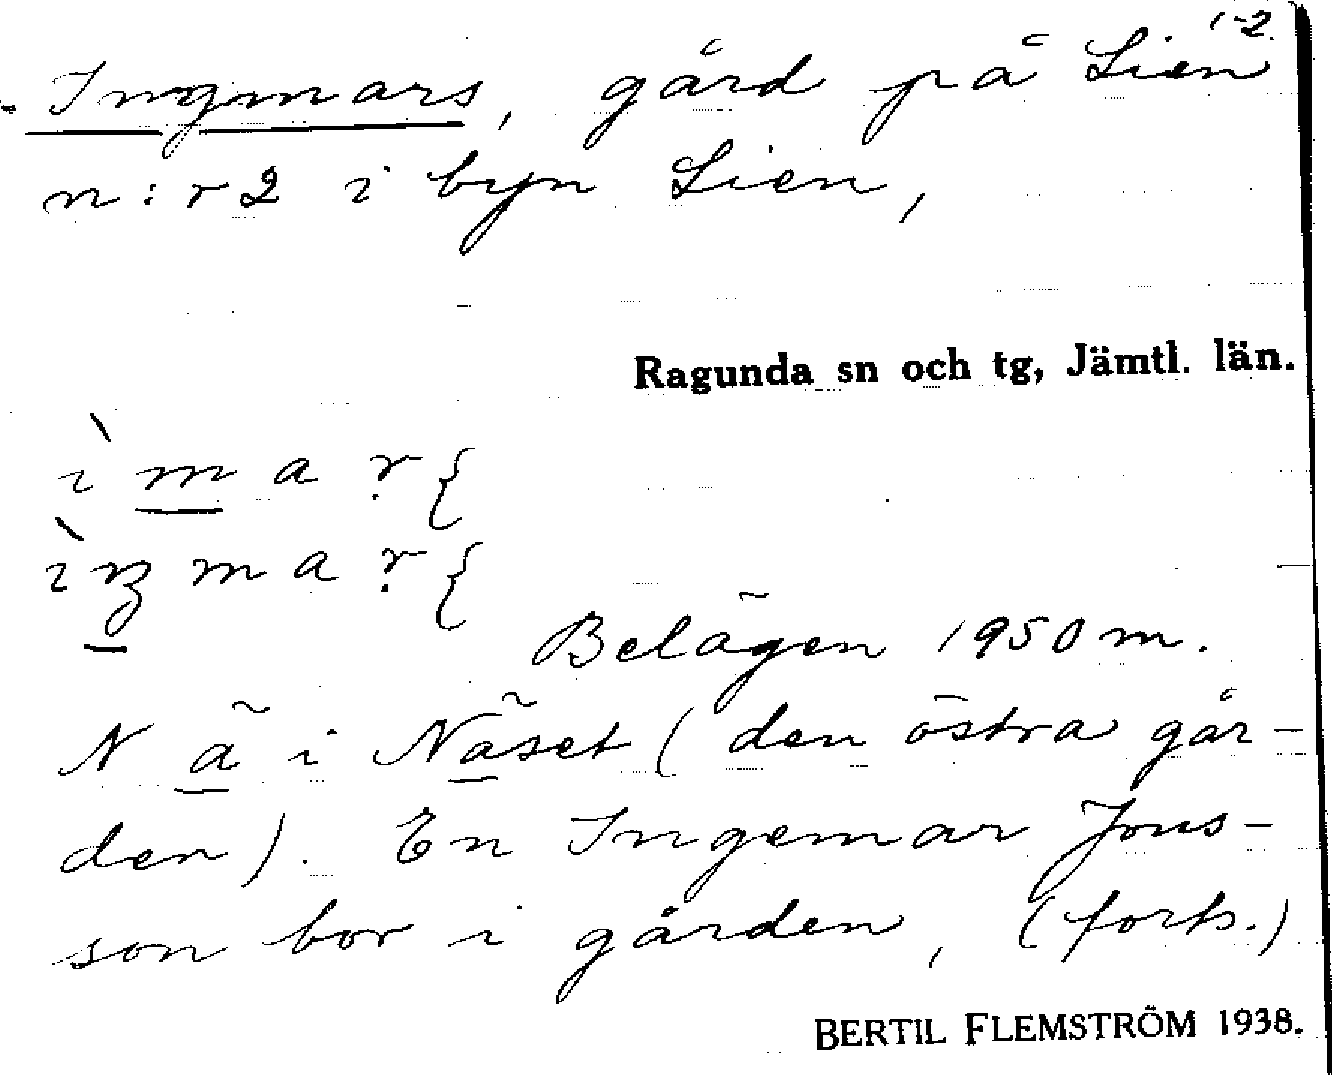 1-2.
Ingmars, gård på Lien
n:r 2 i byn Lien,
Ragunda sn och tg, Jämtl. län.
Belägen 1950 m.
N ä i Näset (den östra går-
den). En Ingemar Jons-
son bor i gården, (forts.)
BERTIL FLEMSTRÖM 1938.